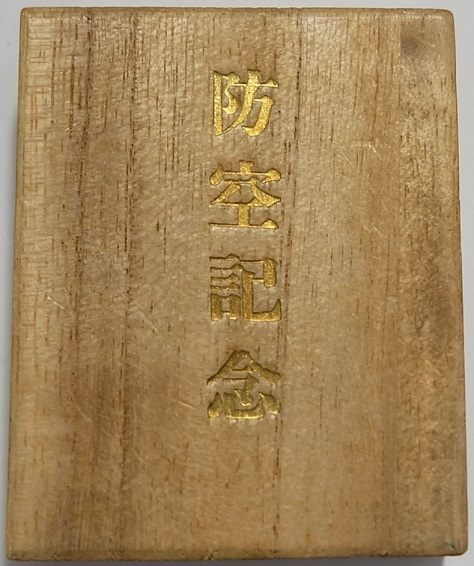 防空記念